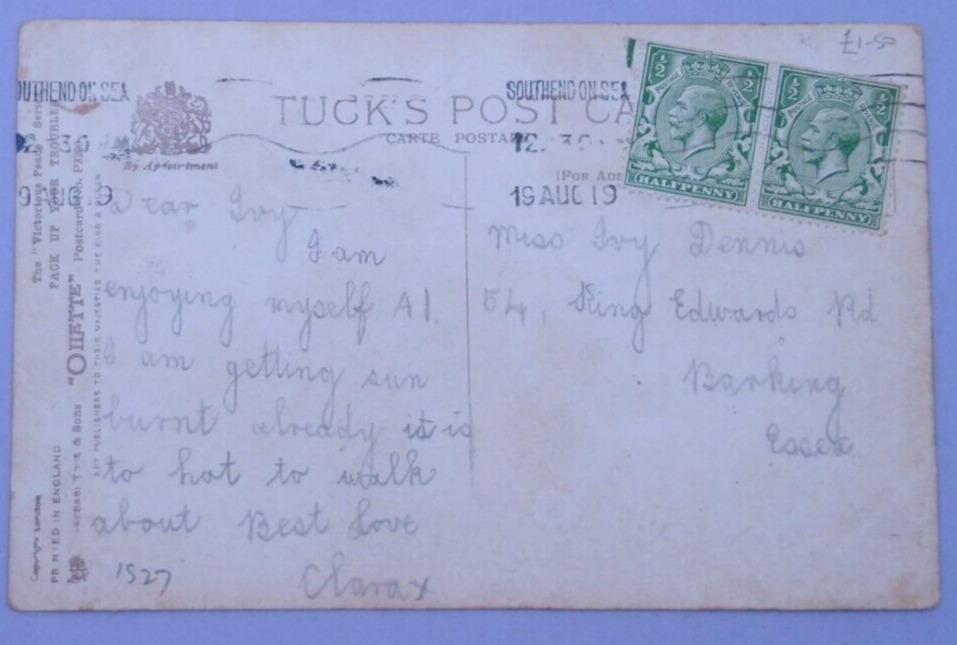 £1-50
SOUTHEND ON SEA
12. 30
19 AUG 19
OUTHEND ON SEA
2 30
9 AUG 19
TUCK'S POST CA
CARTE POSTA
(FOR ADD
By Appointment
½ ½
POSTAGE REVENUE
HALFPENNY
½ ½
POSTAGE REVENUE
HALFPENNY
The "Victorious Peace Series
PACK UP YOUR TROUBLE
"OILETTE" Postcard
& Sons
ART PUBLISHERS TO THEIR MAJESTIES THE KING & QUEEN
Copyright London
PRINTED IN ENGLAND
Dear Ivy
I am
enjoying myself A1.
I am getting sun
burnt already it is
to hot to walk
about Best Love
Clara x
1527
Miss Ivy Dennis
54, King Edwards Rd
Barking
Essex